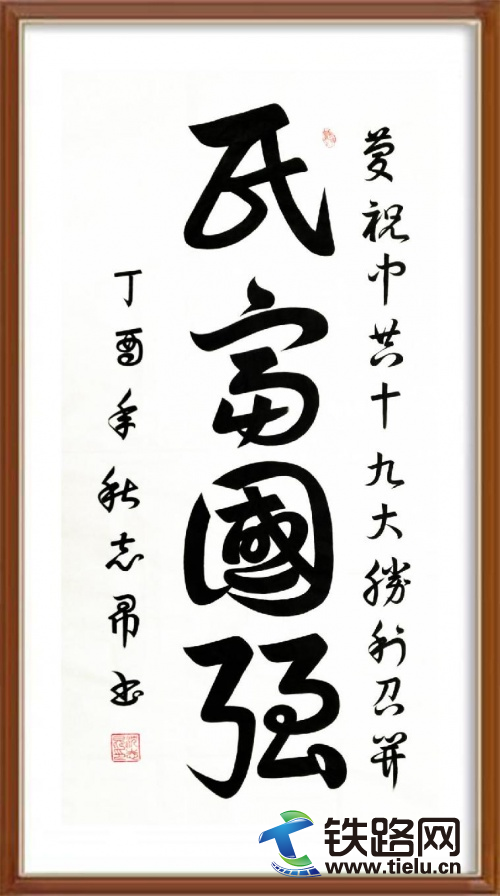 慶祝中共十九大勝利召開
民富國强
丁酉年秋志昂书
铁路网
www.tielu.cn